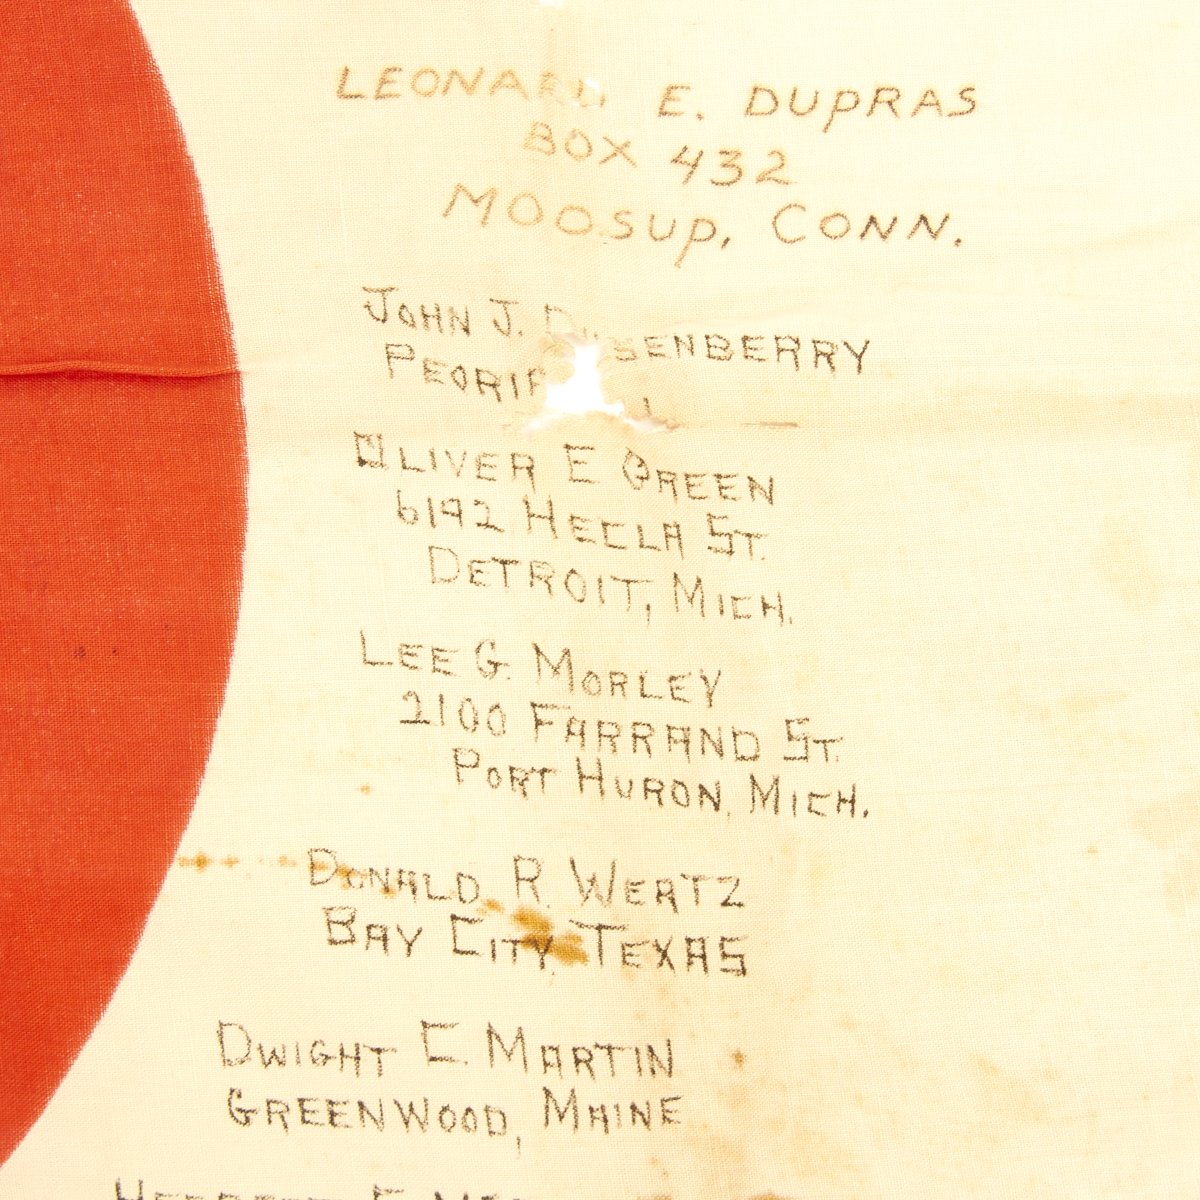 LEONARD E. DUPRAS
BOX 432
MOOSUP, CONN.
JOHN J. DUSENBERRY
PEORIA
OLIVER E GREEN
6192 HECLA ST.
DETROIT, MICH.
LEE G. MORLEY
2100 FARRAND ST.
PORT HURON, MICH.
DONALD R. WERTZ
BAY CITY, TEXAS
DWIGHT E. MARTIN
GREENWOOD, MAINE